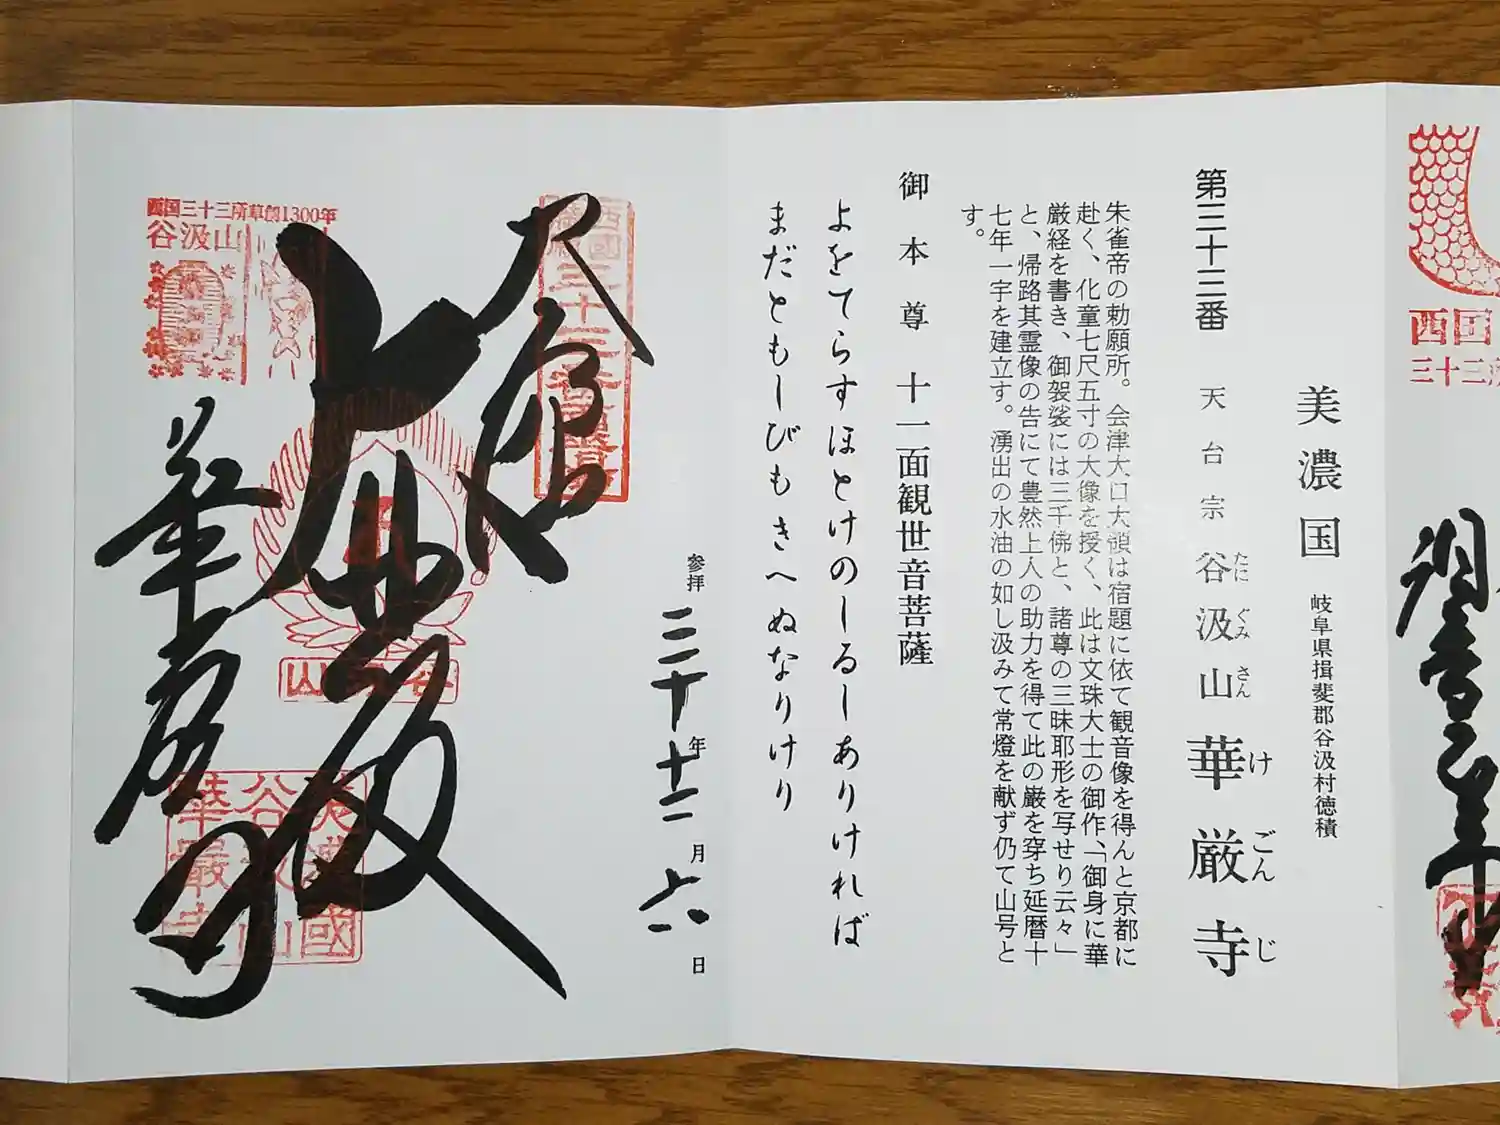 西国
三十三所
美濃国 岐阜県揖斐郡谷汲村徳積
第三十三番 天台宗 谷汲山 華厳寺
たにぐみさん けごんじ
朱雀帝の勅願所。会津大口大領は宿題に依て観音像を得んと京都に
赴く、化童七尺五寸の大像を授く、此は文珠大士の御作、「御身に華
厳経を書き、御袈裟には三千佛と、諸尊の三昧耶形を写せり云々」
と、帰路其霊像の告にて豊然上人の助力を得て此の巌を穿ち延暦十
七年一宇を建立す。湧出の水油の如し汲みて常燈を献ず仍て山号と
す。
御本尊 十一面観世音菩薩
よをてらすほとけのしるしありければ
まだともしびもきへぬなりけり
参拝 三十年十二月六日
西国三十三所草創1300年
谷汲山
華厳寺